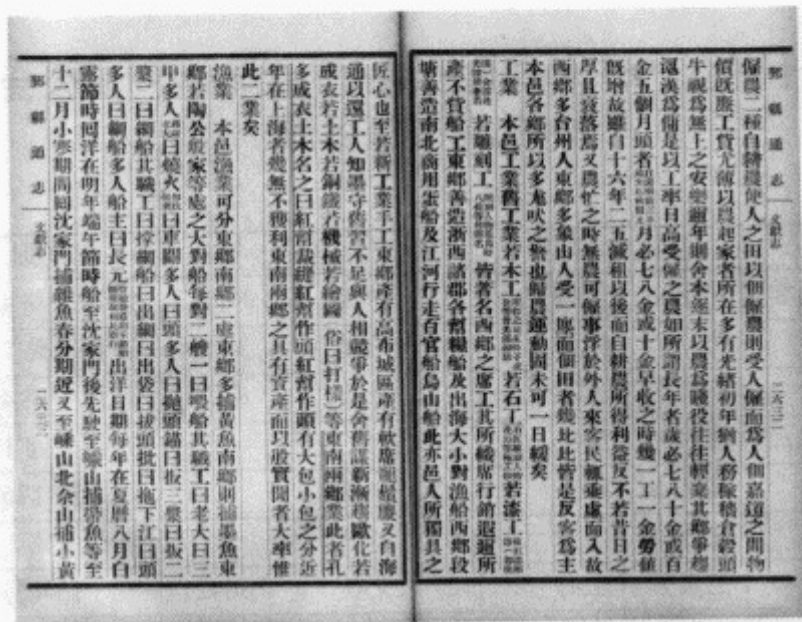 鄞縣通志 文獻志 二六三二
傭農二種自耕農使人之田以佃傭農則受人傭而爲人佃嘉道之間物
價旣賤工貲尤薄以農起家者所在多有光緒初年猶人務稼穡倉穀頭
牛視爲無上之安樂邇年則舍本逐末以農爲賤役往往輕棄其鄉爭趨
滬漢爲傭是以工率日高受傭之農如所謂長年者歲必七八十金或百
金五個月頭者 月必七八金或十金早收之時幾一工一金勞値
旣增故雖自十六年二五減租以後而自耕農所得利益反不若昔日之
厚且衰落焉又農忙之時無農可傭事浮於外人來客民輒乘虛而入故
西鄉多台州人東鄉多象山人受一廛而佃田者幾比比皆是反客爲主
本邑各鄉所以多尨吠之警也歸農運動固未可一日緩矣
工業 本邑工業舊工業若木工 若石工 若漆工
若雕刻工 皆著名西鄉之蓆工其所織席行銷遐邇所
產不貲船工東鄉善造浙西諸郡各幫糧船及出海大小對漁船西鄉段
塘善造南北商用蛋船及江河行走百官船烏山船此亦邑人所獨具之
匠心也至若新工業手工東鄉產有高布城區產有軟席 又自海
通以還工人知墨守舊習不足與人相競爭於是舍舊謀新漸趨歐化若
成衣若土木若銅鐵若機械若繪圖 俗曰打樣 等東南兩鄉業此者孔
多成衣土木名之曰紅幫裁縫紅幫作頭紅幫作頭有大包小包之分近
年在上海者幾無不獲利東南兩鄉之具有資產而以殷實聞者大率惟
此二業矣
漁業 本邑漁業可分東鄉南鄉二處東鄉多捕黃魚南鄉則捕墨魚東
鄉若陶公殷家等處之大對船每對二艘一曰喂船其職工曰老大曰三
甲多人 曰燒火 曰車關多人曰頭多人曰拋頭錨曰扳三槳曰扳二
槳二曰網船其職工曰撐網船曰出網曰出袋曰拔頭批曰拖下江曰頭
多人曰網船多人船主曰長元 出洋日期每年在夏曆八月白
露節時回洋在明年端午節時船至沈家門後先駛至嵊山捕帶魚等至
十二月小寒期間回沈家門捕雜魚春分期近又至嵊山北余山捕小黃
鄞縣通志 文獻志 二六三三